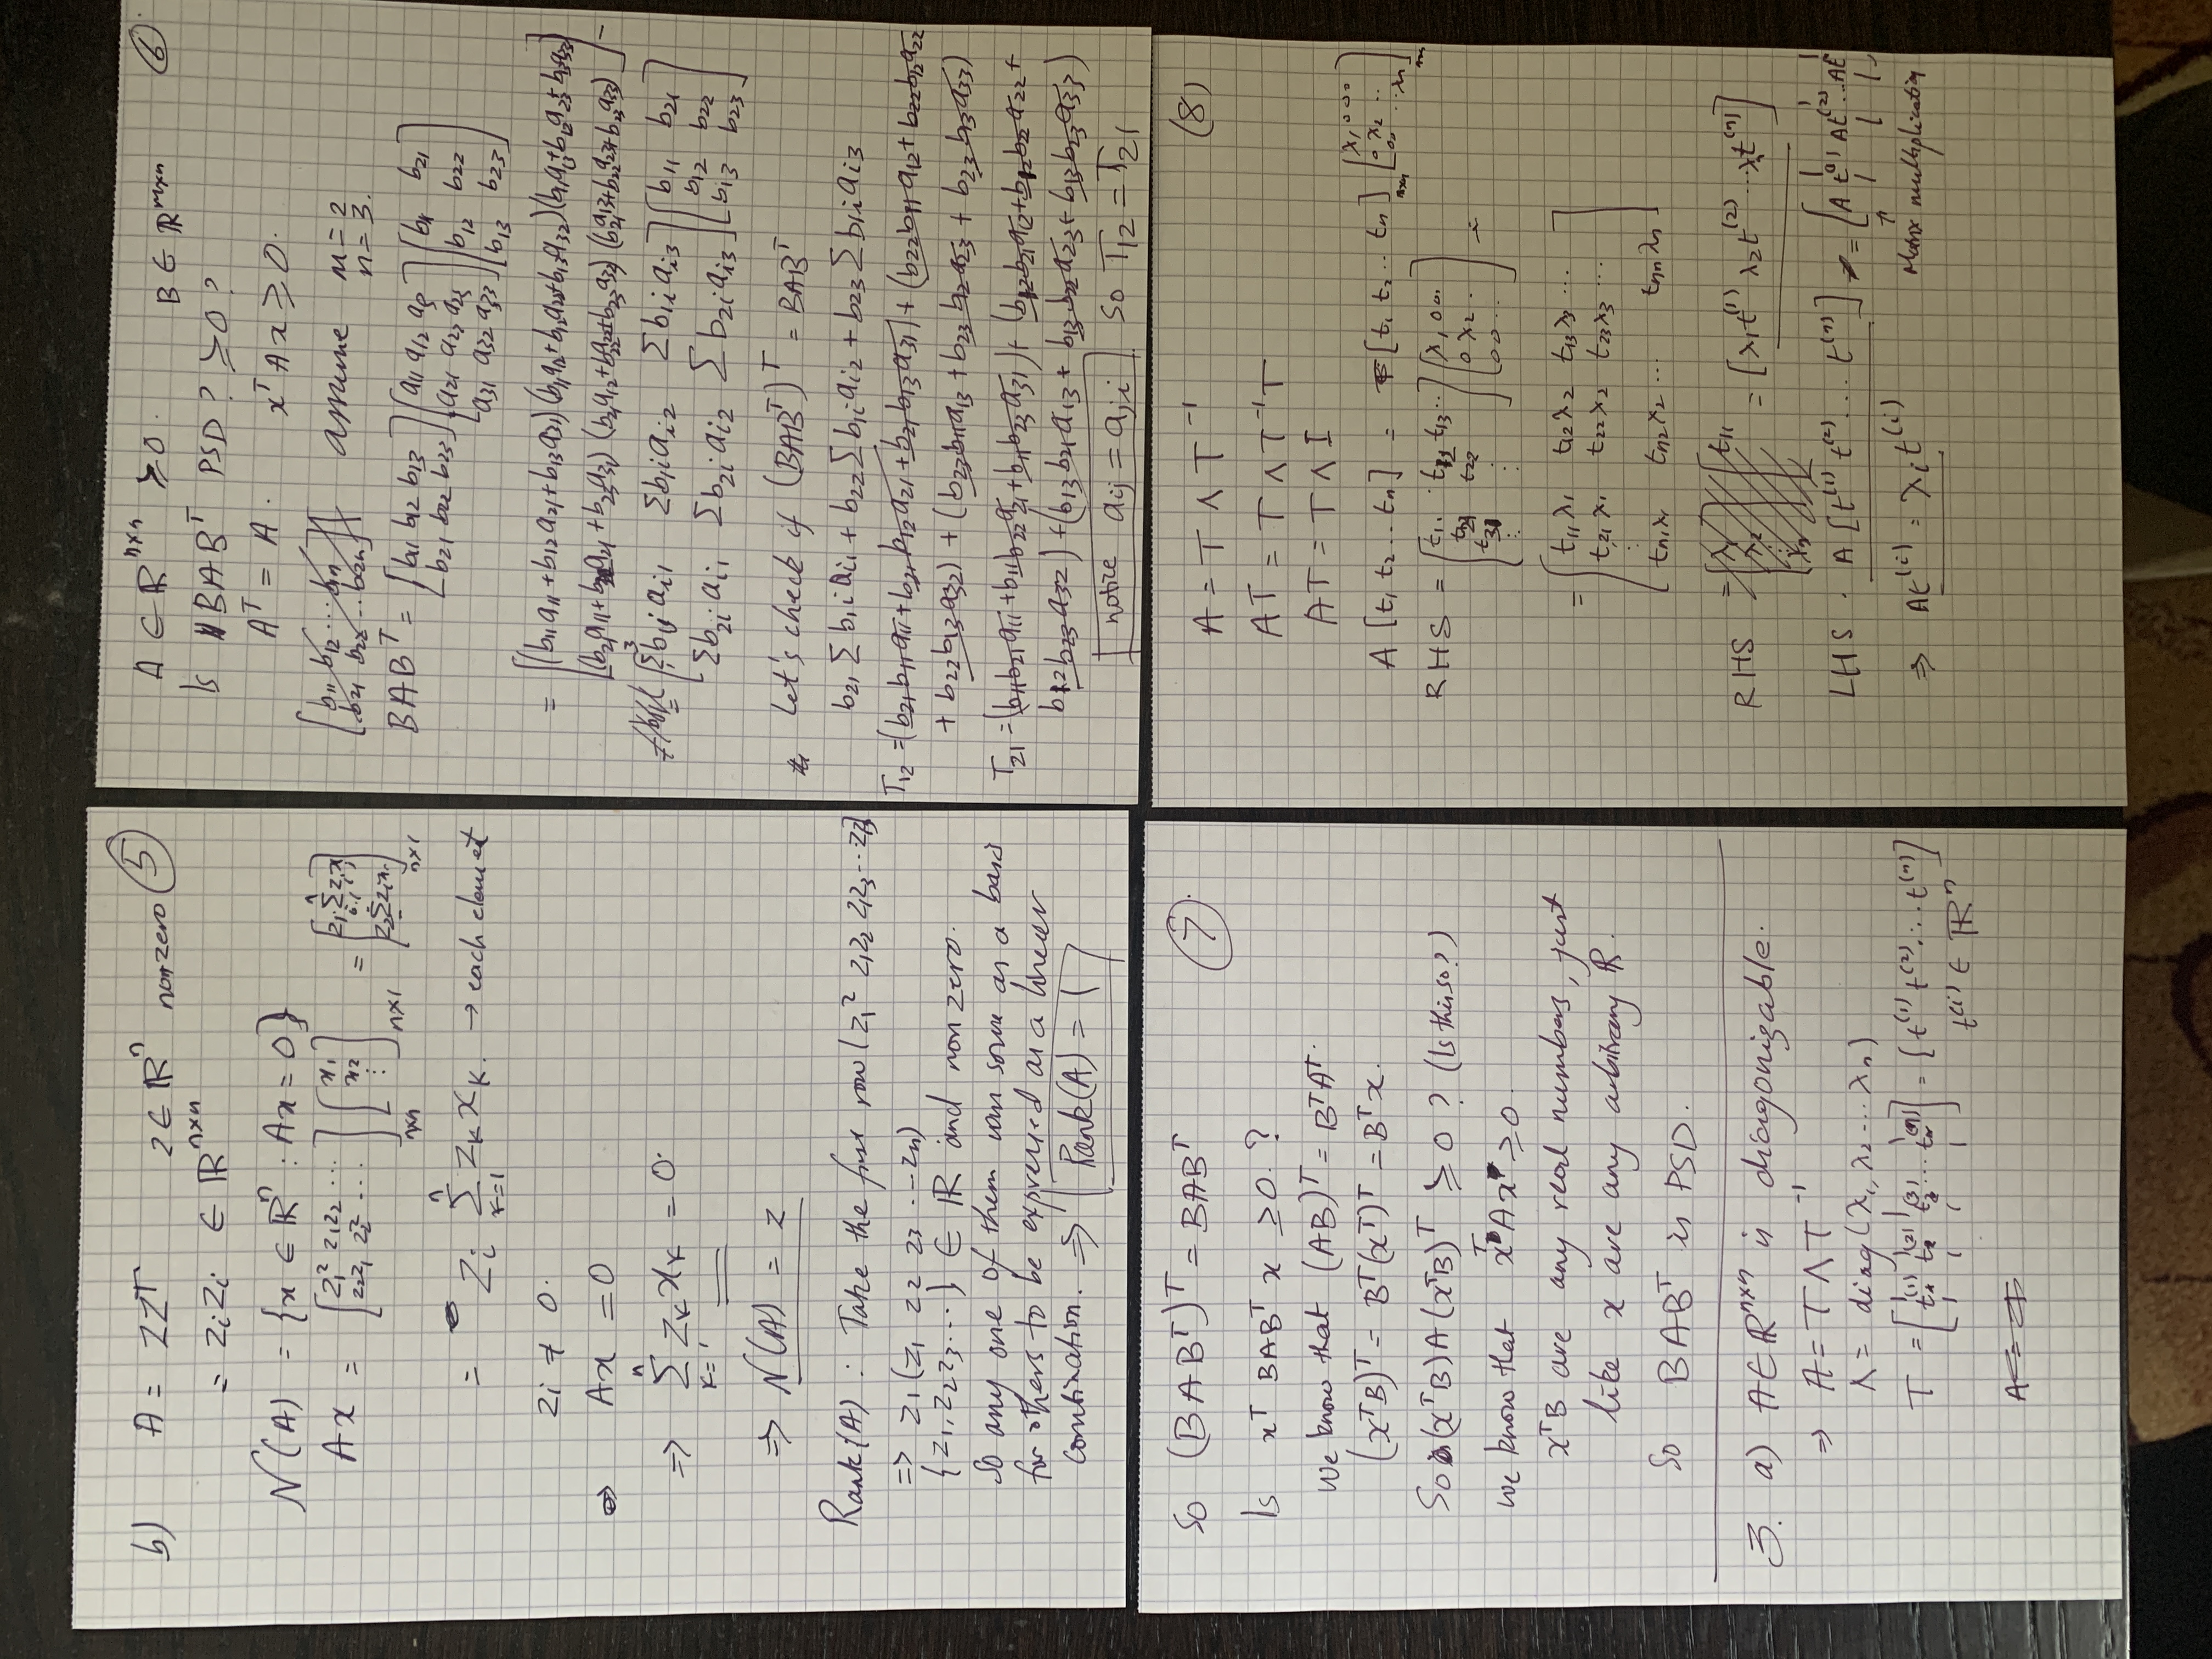 b) A = ZZᵀ z ∈ ℝⁿ nonzero ⑤
= zᵢzᵢ ∈ ℝⁿˣⁿ
N(A) = {x ∈ ℝⁿ : Ax = 0}
Ax = [z₁² z₁z₂ ⋯ ; z₂z₁ z₂² ⋯]ₙₓₙ [x₁ ; x₂ ; ⋮]ₙₓ₁ = [z₁ Σ zᵢxᵢ ; z₂ Σ zᵢxᵢ]ₙₓ₁
= zᵢ Σₖ₌₁ⁿ zₖxₖ. → each element
zᵢ ≠ 0.
⇒ Ax = 0
⇒ Σₖ₌₁ⁿ zₖxₖ = 0.
⇒ N(A) = z
Rank(A) : Take the first row (z₁² z₁z₂ z₁z₃ ⋯
⇒ z₁(z₁ z₂ z₃ ⋯ zₙ)
{z₁, z₂ z₃ ⋯} ∈ ℝ and non zero.
So any one of them can serve as a basis
for others to be expressed as a linear
combination. ⇒ Rank(A) = 1
A ∈ ℝⁿˣⁿ ≥0. B ∈ ℝᵐˣⁿ ⑥
Is BABᵀ PSD? ≥0?
Aᵀ = A. xᵀAx ≥ 0.
[b₁₁ b₁₂ ⋯ b₁ₙ ; b₂₁ b₂₂ ⋯ b₂ₙ] assume m = 2
n = 3.
BABᵀ = [b₁₁ b₁₂ b₁₃ ; b₂₁ b₂₂ b₂₃] [a₁₁ a₁₂ a₁₃ ; a₂₁ a₂₂ a₂₃ ; a₃₁ a₃₂ a₃₃] [b₁₁ b₂₁ ; b₁₂ b₂₂ ; b₁₃ b₂₃]
= [(b₁₁a₁₁+b₁₂a₂₁+b₁₃a₃₁) (b₁₁a₁₂+b₁₂a₂₂+b₁₃a₃₂) (b₁₁a₁₃+b₁₂a₂₃+b₁₃a₃₃)
(b₂₁a₁₁+b₂₂a₂₁+b₂₃a₃₁) (b₂₁a₁₂+b₂₂a₂₂+b₂₃a₃₂) (b₂₁a₁₃+b₂₂a₂₃+b₂₃a₃₃)]
= [Σ³ b₁ᵢaᵢ₁ Σb₁ᵢaᵢ₂ Σb₁ᵢaᵢ₃ ; Σb₂ᵢaᵢ₁ Σb₂ᵢaᵢ₂ Σb₂ᵢaᵢ₃] [b₁₁ b₂₁ ; b₁₂ b₂₂ ; b₁₃ b₂₃]
Let's check if (BABᵀ)ᵀ = BABᵀ
b₂₁Σb₁ᵢaᵢ₁ + b₂₂Σb₁ᵢaᵢ₂ + b₂₃Σb₁ᵢaᵢ₃
T₁₂ = (b₂₁b₁₁a₁₁+b₂₁b₁₂a₂₁+b₂₁b₁₃a₃₁) + (b₂₂b₁₁a₁₂+b₂₂b₁₂a₂₂
+ b₂₂b₁₃a₃₂) + (b₂₃b₁₁a₁₃ + b₂₃b₁₂a₂₃ + b₂₃b₁₃a₃₃)
T₂₁ = (b₁₁b₂₁a₁₁ + b₁₁b₂₂a₂₁ + b₁₁b₂₃a₃₁) + (b₁₂b₂₁a₁₂+b₁₂b₂₂a₂₂+
b₁₂b₂₃a₃₂) + (b₁₃b₂₁a₁₃ + b₁₃b₂₂a₂₃ + b₁₃b₂₃a₃₃)
notice aᵢⱼ = aⱼᵢ So T₁₂ = T₂₁
So (BABᵀ)ᵀ = BABᵀ ⑦
Is xᵀ BABᵀ x ≥0. ?
We know that (AB)ᵀ = BᵀAᵀ.
(xᵀB)ᵀ = Bᵀ(xᵀ)ᵀ = Bᵀx.
So (xᵀB)A(xᵀB)ᵀ ≥ 0 ? (Is this so?)
we know that xᵀAx ≥ 0.
xᵀB are any real numbers, just
like x are any arbitrary ℝ.
So BABᵀ is PSD.
3. a) A∈ℝⁿˣⁿ is diagonizable.
⇒ A = TΛT⁻¹
Λ = diag(λ₁, λ₂ ⋯ λₙ)
T = [t⁽¹⁾ t⁽²⁾ t⁽³⁾ ⋯ t⁽ⁿ⁾] = [t⁽¹⁾ t⁽²⁾ ⋯ t⁽ⁿ⁾]
t⁽ⁱ⁾ ∈ ℝⁿ
A = T Λ T⁻¹ (8)
AT = T Λ T⁻¹T
AT = T Λ I
A [t₁ t₂ ‥ tₙ] = [t₁ t₂ ‥ tₙ]ₙₓₙ [λ₁ 0 0 0 ; 0 λ₂ ‥ ; 0 0 ‥ λₙ]ₙₓₙ
RHS = [t₁₁ t₁₂ t₁₃ ‥ ; t₂₁ t₂₂ ; t₃₁ ⋮ ; ⋮] [λ₁ 0 0 ‥ ; 0 λ₂ ‥ ; 0 0 ‥] =
= [t₁₁λ₁ t₁₂λ₂ t₁₃λ₃ ⋯
t₂₁λ₁ t₂₂λ₂ t₂₃λ₃ ⋯
⋮
tₙ₁λ₁ tₙ₂λ₂ ⋯ tₙₙλₙ]
RHS = [λ₁t⁽¹⁾ λ₂t⁽²⁾ ⋯ λₙt⁽ⁿ⁾]
LHS . A [t⁽¹⁾ t⁽²⁾ ⋯ t⁽ⁿ⁾] = [A t⁽¹⁾ At⁽²⁾ ‥ At
⇒ At⁽ⁱ⁾ = λᵢt⁽ⁱ⁾ ↑ Matrix multiplication